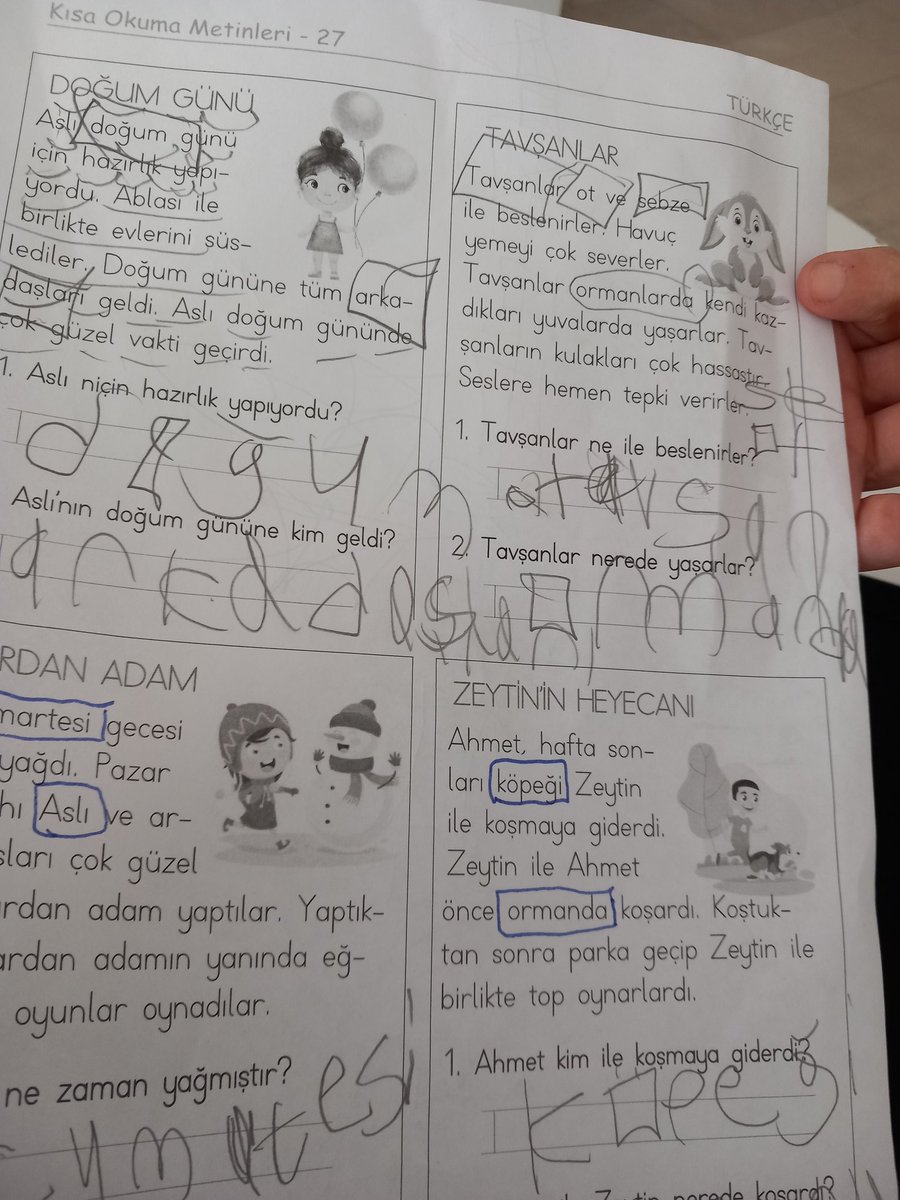 Kısa Okuma Metinleri - 27
TÜRKÇE
DOĞUM GÜNÜ
Aslı doğum günü
için hazırlık yapı-
yordu. Ablası ile
birlikte evlerini süs-
lediler. Doğum gününe tüm arka-
daşları geldi. Aslı doğum gününde
çok güzel vakti geçirdi.
1. Aslı niçin hazırlık yapıyordu?
Aslı'nın doğum gününe kim geldi?
TAVŞANLAR
Tavşanlar ot ve sebze
ile beslenirler. Havuç
yemeyi çok severler.
Tavşanlar ormanlarda kendi kaz-
dıkları yuvalarda yaşarlar. Tav-
şanların kulakları çok hassastır.
Seslere hemen tepki verirler.
1. Tavşanlar ne ile beslenirler?
2. Tavşanlar nerede yaşarlar?
RDAN ADAM
martesi gecesi
yağdı. Pazar
hı Aslı ve ar-
şları çok güzel
ardan adam yaptılar. Yaptık-
ardan adamın yanında eğ-
oyunlar oynadılar.
ne zaman yağmıştır?
ZEYTİN'İN HEYECANI
Ahmet, hafta son-
ları köpeği Zeytin
ile koşmaya giderdi.
Zeytin ile Ahmet
önce ormanda koşardı. Koştuk-
tan sonra parka geçip Zeytin ile
birlikte top oynarlardı.
1. Ahmet kim ile koşmaya giderdi?
Zeytin nerede koşardı?